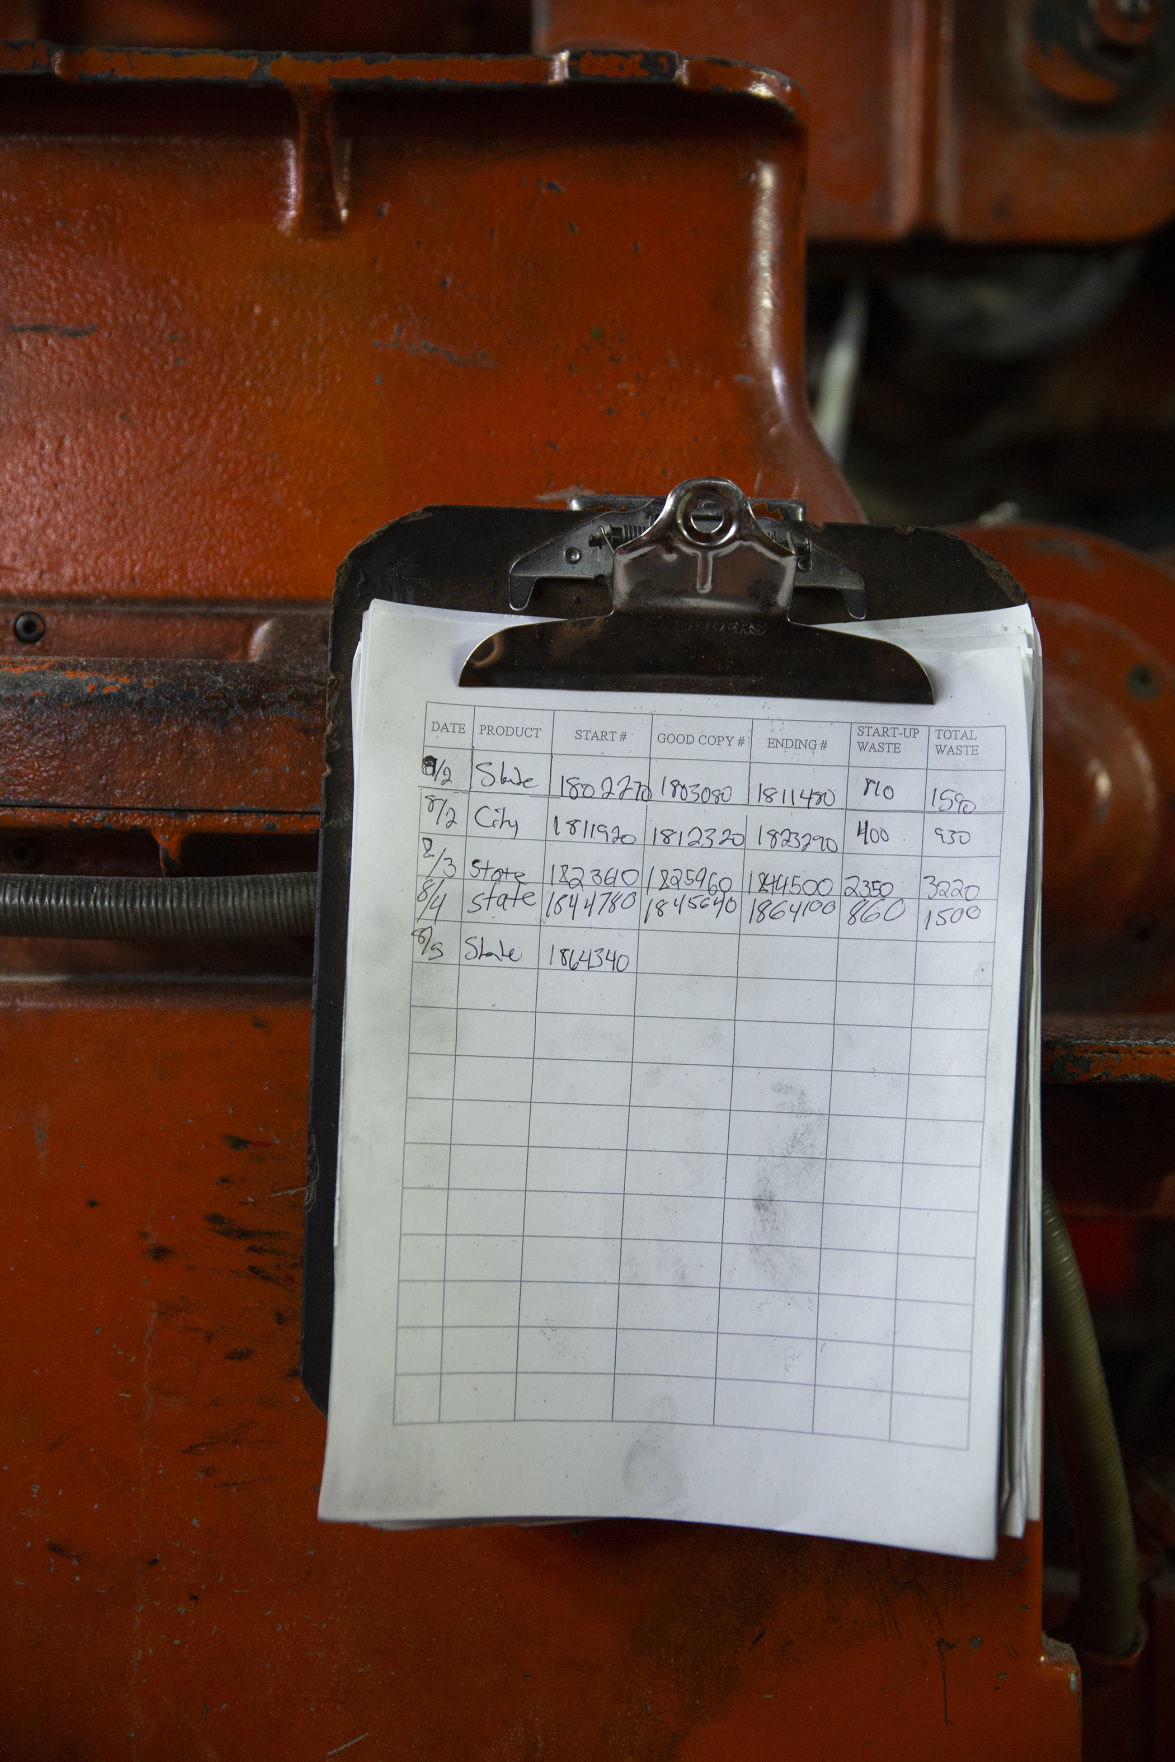 DATE PRODUCT START # GOOD COPY # ENDING # START-UP WASTE TOTAL WASTE
8/2 State 1802270 1803080 1811480 810 1590
8/2 City 1811920 1812320 1823290 400 930
8/3 State 1823610 1825960 1844500 2350 3220
8/4 State 1844780 1845640 1864100 860 1500
8/5 State 1864340